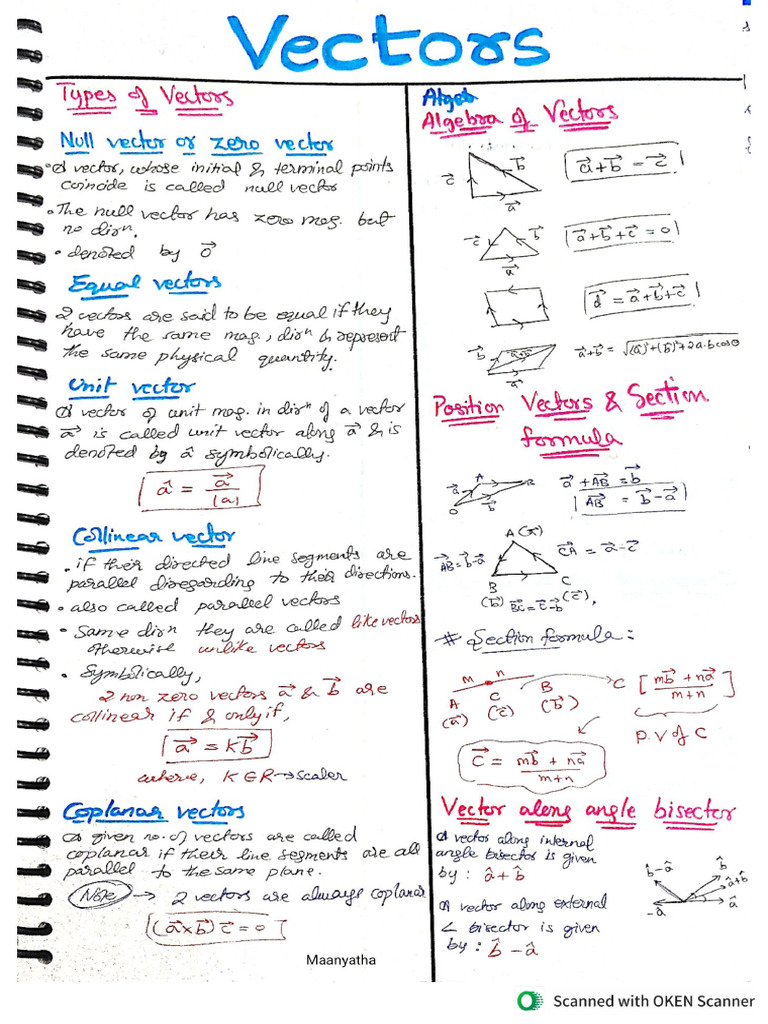 Vectors
Types of Vectors
Null vector or zero vector
• A vector, whose initial & terminal points
coincide is called null vector
• The null vector has zero mag. but
no dirⁿ.
• denoted by 0⃗
Equal vectors
2 vectors are said to be equal if they
have the same mag., dirⁿ & represent
the same physical quantity.
Unit vector
A vector of unit mag. in dirⁿ of a vector
a⃗ is called unit vector along a⃗ & is
denoted by â symbolically.
â = a⃗ / |a|
Collinear vector
• if their directed line segments are
parallel disregarding to their directions.
• also called parallel vectors
• Same dirn they are called like vectors
otherwise unlike vectors
• Symbolically,
2 non zero vectors a⃗ & b⃗ are
collinear if & only if,
a⃗ = K b⃗
where, K ∈ R → scaler
Coplanar vectors
A given no. of vectors are called
coplanar if their line segments are all
parallel to the same plane.
Note → 2 vectors are always coplanar
(a⃗ x b⃗) c⃗ = 0
Algeb
Algebra of Vectors
c⃗ b⃗ a⃗
a⃗ + b⃗ = c⃗
c⃗ b⃗ a⃗
a⃗ + b⃗ + c⃗ = 0
d⃗ = a⃗ + b⃗ + c⃗
b⃗ a+b a⃗
a⃗ + b⃗ = √(a)² + (b)² + 2a·b cosθ
Position Vectors & Section
formula
a⃗ A B b⃗ O
a⃗ + AB⃗ = b⃗
AB⃗ = b⃗ - a⃗
A (a⃗)
AB⃗ = b⃗ - a⃗
CA⃗ = a⃗ - c⃗
B C
(b⃗) BC⃗ = c⃗ - b⃗ (c⃗)
# Section formula :
m n
A C B
(a⃗) (c⃗) (b⃗)
C [ mb⃗ + na⃗ / m+n ]
P.V of C
c⃗ = mb⃗ + na⃗ / m+n
Vector along angle bisector
A vector along internal
angle bisector is given
by : â + b̂
A vector along external
∠ bisector is given
by : b̂ - â
b̂ - â b̂ â + b̂ â -â
Maanyatha
Scanned with OKEN Scanner